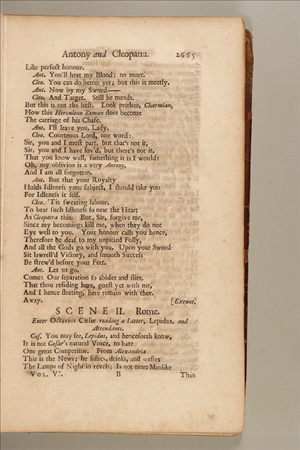 Antony and Cleopatra. 2665
Like perfect honour.
Ant. You'll heat my Blood: no more.
Cleo. You can do better yet; but this is meetly.
Ant. Now by my Sword——
Cleo. And Target. Still he mends.
But this is not the best. Look prithee, Charmian,
How this Herculean Roman does become
The carriage of his Chafe.
Ant. I'll leave you, Lady.
Cleo. Courteous Lord, one word:
Sir, you and I must part, but that's not it,
Sir, you and I have lov'd, but there's not it,
That you know well, something it is I would:
Oh, my oblivion is a very Antony,
And I am all forgotten.
Ant. But that your Royalty
Holds Idleness your subject, I should take you
For Idleness it self.
Cleo. 'Tis sweating labour,
To bear such Idleness so near the Heart
As Cleopatra this. But, Sir, forgive me,
Since my becomings kill me, when they do not
Eye well to you. Your honour calls you hence,
Therefore be deaf to my unpitied Folly,
And all the Gods go with you. Upon your Sword
Sit lawrell'd Victory, and smooth Success
Be strew'd before your Feet.
Ant. Let us go.
Come: Our separation so abides and flies,
That thou residing here, goest yet with me,
And I hence fleeting, here remain with thee.
Away. [Exeunt.
SCENE II. Rome.
Enter Octavius Cæsar reading a Letter, Lepidus, and
Attendants.
Cæs. You may see, Lepidus, and henceforth know,
It is not Cæsar's natural Voice, to hate
One great Competitor. From Alexandria
This is the News; he fishes, drinks, and wastes
The Lamps of Night in revels; Is not more Manlike
VOL. V. B Than